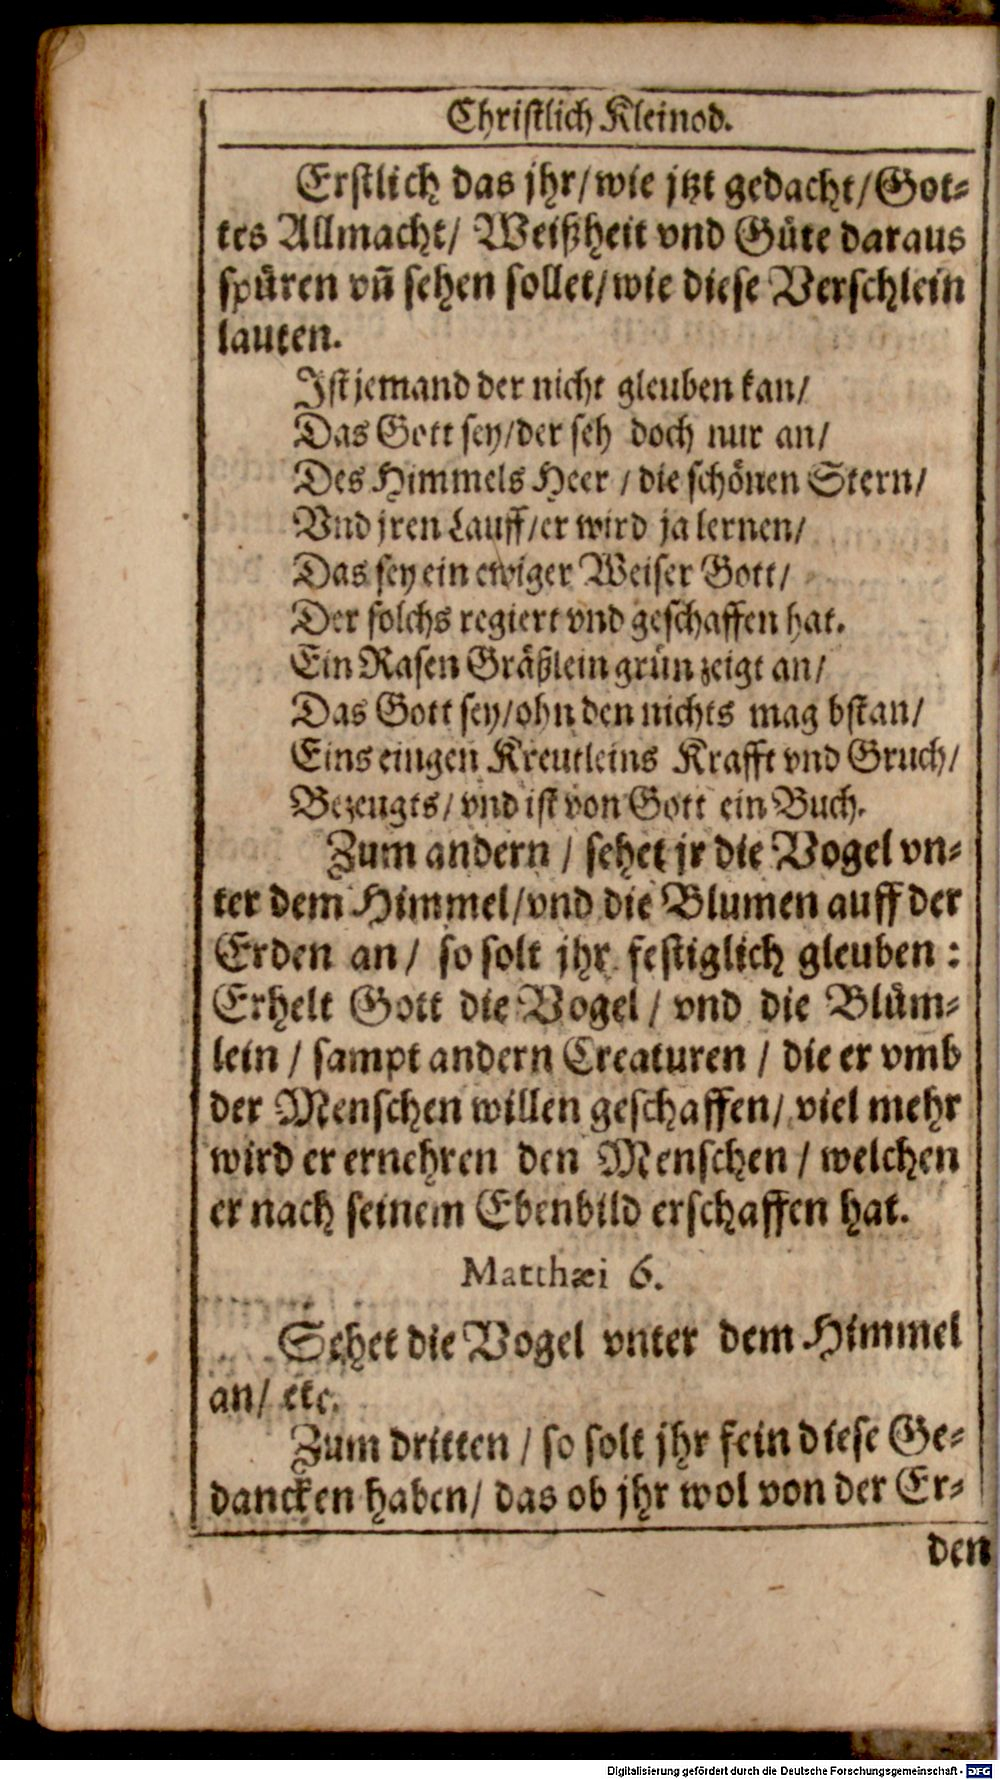 Christlich Kleinod.
Erstlich das jhr/wie jtzt gedacht/Got⸗
tes Allmacht/ Weißheit vnd Güte daraus
spüren vñ sehen sollet/wie diese Verschlein
lauten.
Ist jemand der nicht gleuben kan/
Das Gott sey/der seh doch nur an/
Des Himmels Heer / die schönen Stern/
Vnd jren Lauff/er wird ja lernen/
Das sey ein ewiger Weiser Gott/
Der solchs regiert vnd geschaffen hat.
Ein Rasen Gräßlein grün zeigt an/
Das Gott sey/ohn den nichts mag bstan/
Eins eingen Kreutleins Krafft vnd Gruch/
Bezeugts/ vnd ist von Gott ein Buch.
Zum andern / sehet jr die Vogel vn⸗
ter dem Himmel/vnd die Blumen auff der
Erden an/ so solt jhr festiglich gleuben:
Erhelt Gott die Vogel/ vnd die Blüm⸗
lein / sampt andern Creaturen / die er vmb
der Menschen willen geschaffen/ viel mehr
wird er ernehren den Menschen / welchen
er nach seinem Ebenbild erschaffen hat.
Matthæi 6.
Sehet die Vogel vnter dem Himmel
an/ etc.
Zum dritten / so solt jhr fein diese Ge⸗
dancken haben/ das ob jhr wol von der Er⸗
den
Digitalisierung gefördert durch die Deutsche Forschungsgemeinschaft - DFG